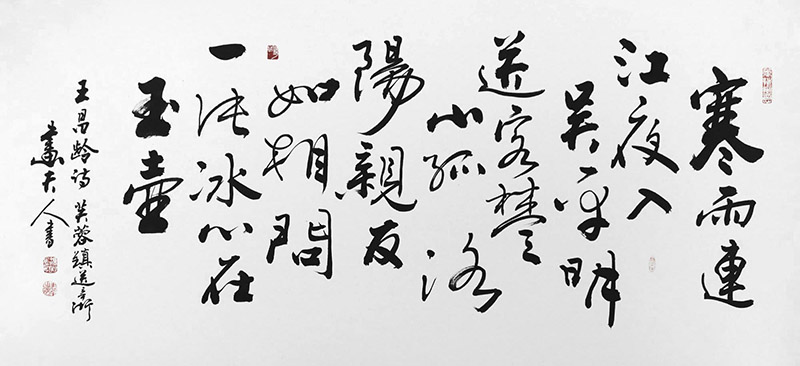 寒雨連
江夜入
吴平明
送客楚
山孤 洛
陽親友
如相問
一片冰心在
玉壺
王昌龄诗 芙蓉鎮送辛
人書